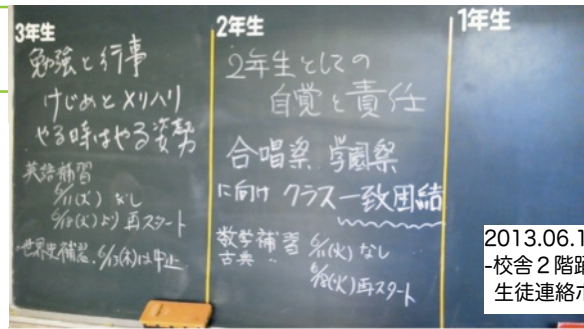 3年生
勉強と行事
けじめとメリハリ
やる時はやる姿勢
英語補習
6/11(火) なし
6/18(火)より再スタート
世界史補習. 6/13(木)は中止
2年生
2年生としての
自覚と責任
合唱祭 学園祭
に向け クラス一致団結
数学補習 6/11(火) なし
古典 6/18(火)再スタート
1年生
2013.06.1
-校舎２階
生徒連絡